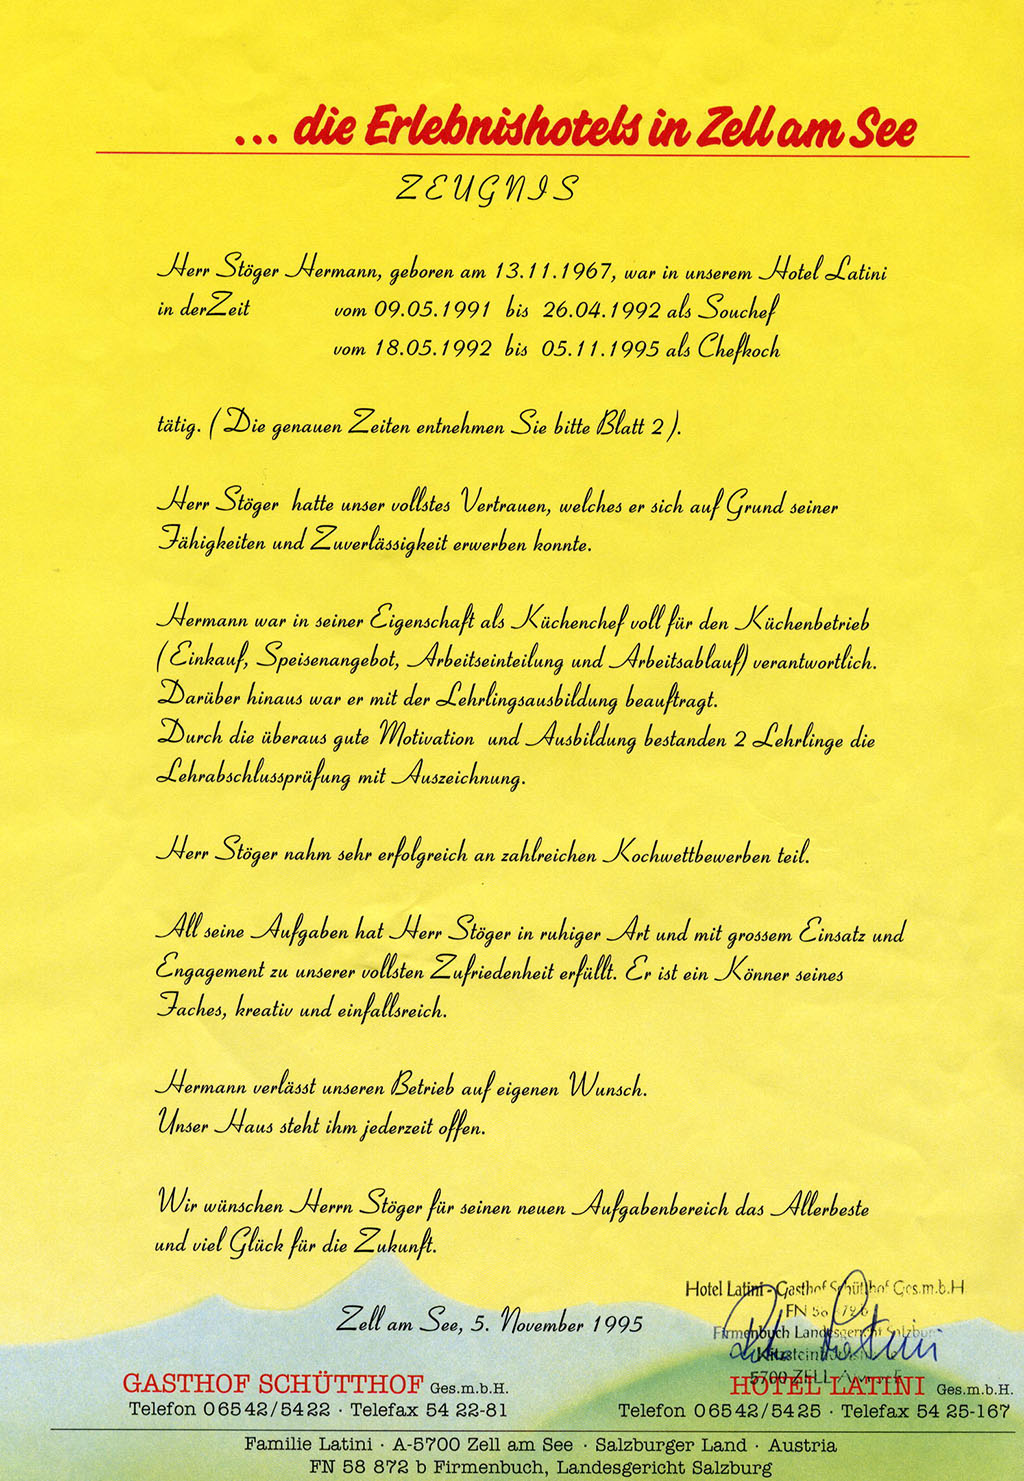 ... die Erlebnishotels in Zell am See
ZEUGNIS
Herr Stöger Hermann, geboren am 13.11.1967, war in unserem Hotel Latini
in derZeit vom 09.05.1991 bis 26.04.1992 als Souchef
vom 18.05.1992 bis 05.11.1995 als Chefkoch
tätig. ( Die genauen Zeiten entnehmen Sie bitte Blatt 2 ).
Herr Stöger hatte unser vollstes Vertrauen, welches er sich auf Grund seiner
Fähigkeiten und Zuverlässigkeit erwerben konnte.
Hermann war in seiner Eigenschaft als Küchenchef voll für den Küchenbetrieb
( Einkauf, Speisenangebot, Arbeitseinteilung und Arbeitsablauf) verantwortlich.
Darüber hinaus war er mit der Lehrlingsausbildung beauftragt.
Durch die überaus gute Motivation und Ausbildung bestanden 2 Lehrlinge die
Lehrabschlussprüfung mit Auszeichnung.
Herr Stöger nahm sehr erfolgreich an zahlreichen Kochwettbewerben teil.
All seine Aufgaben hat Herr Stöger in ruhiger Art und mit grossem Einsatz und
Engagement zu unserer vollsten Zufriedenheit erfüllt. Er ist ein Könner seines
Faches, kreativ und einfallsreich.
Hermann verlässt unseren Betrieb auf eigenen Wunsch.
Unser Haus steht ihm jederzeit offen.
Wir wünschen Herrn Stöger für seinen neuen Aufgabenbereich das Allerbeste
und viel Glück für die Zukunft.
Hotel Latini - Gasthof Schütthof Ges.m.b.H.
FN
Firmenbuch Landesgericht Salzburg
5700 ZELL
Zell am See, 5. November 1995
GASTHOF SCHÜTTHOF Ges.m.b.H.
Telefon 06542/5422 · Telefax 54 22-81
HOTEL LATINI Ges.m.b.H.
Telefon 06542/5425 · Telefax 54 25-167
Familie Latini · A-5700 Zell am See · Salzburger Land · Austria
FN 58 872 b Firmenbuch, Landesgericht Salzburg